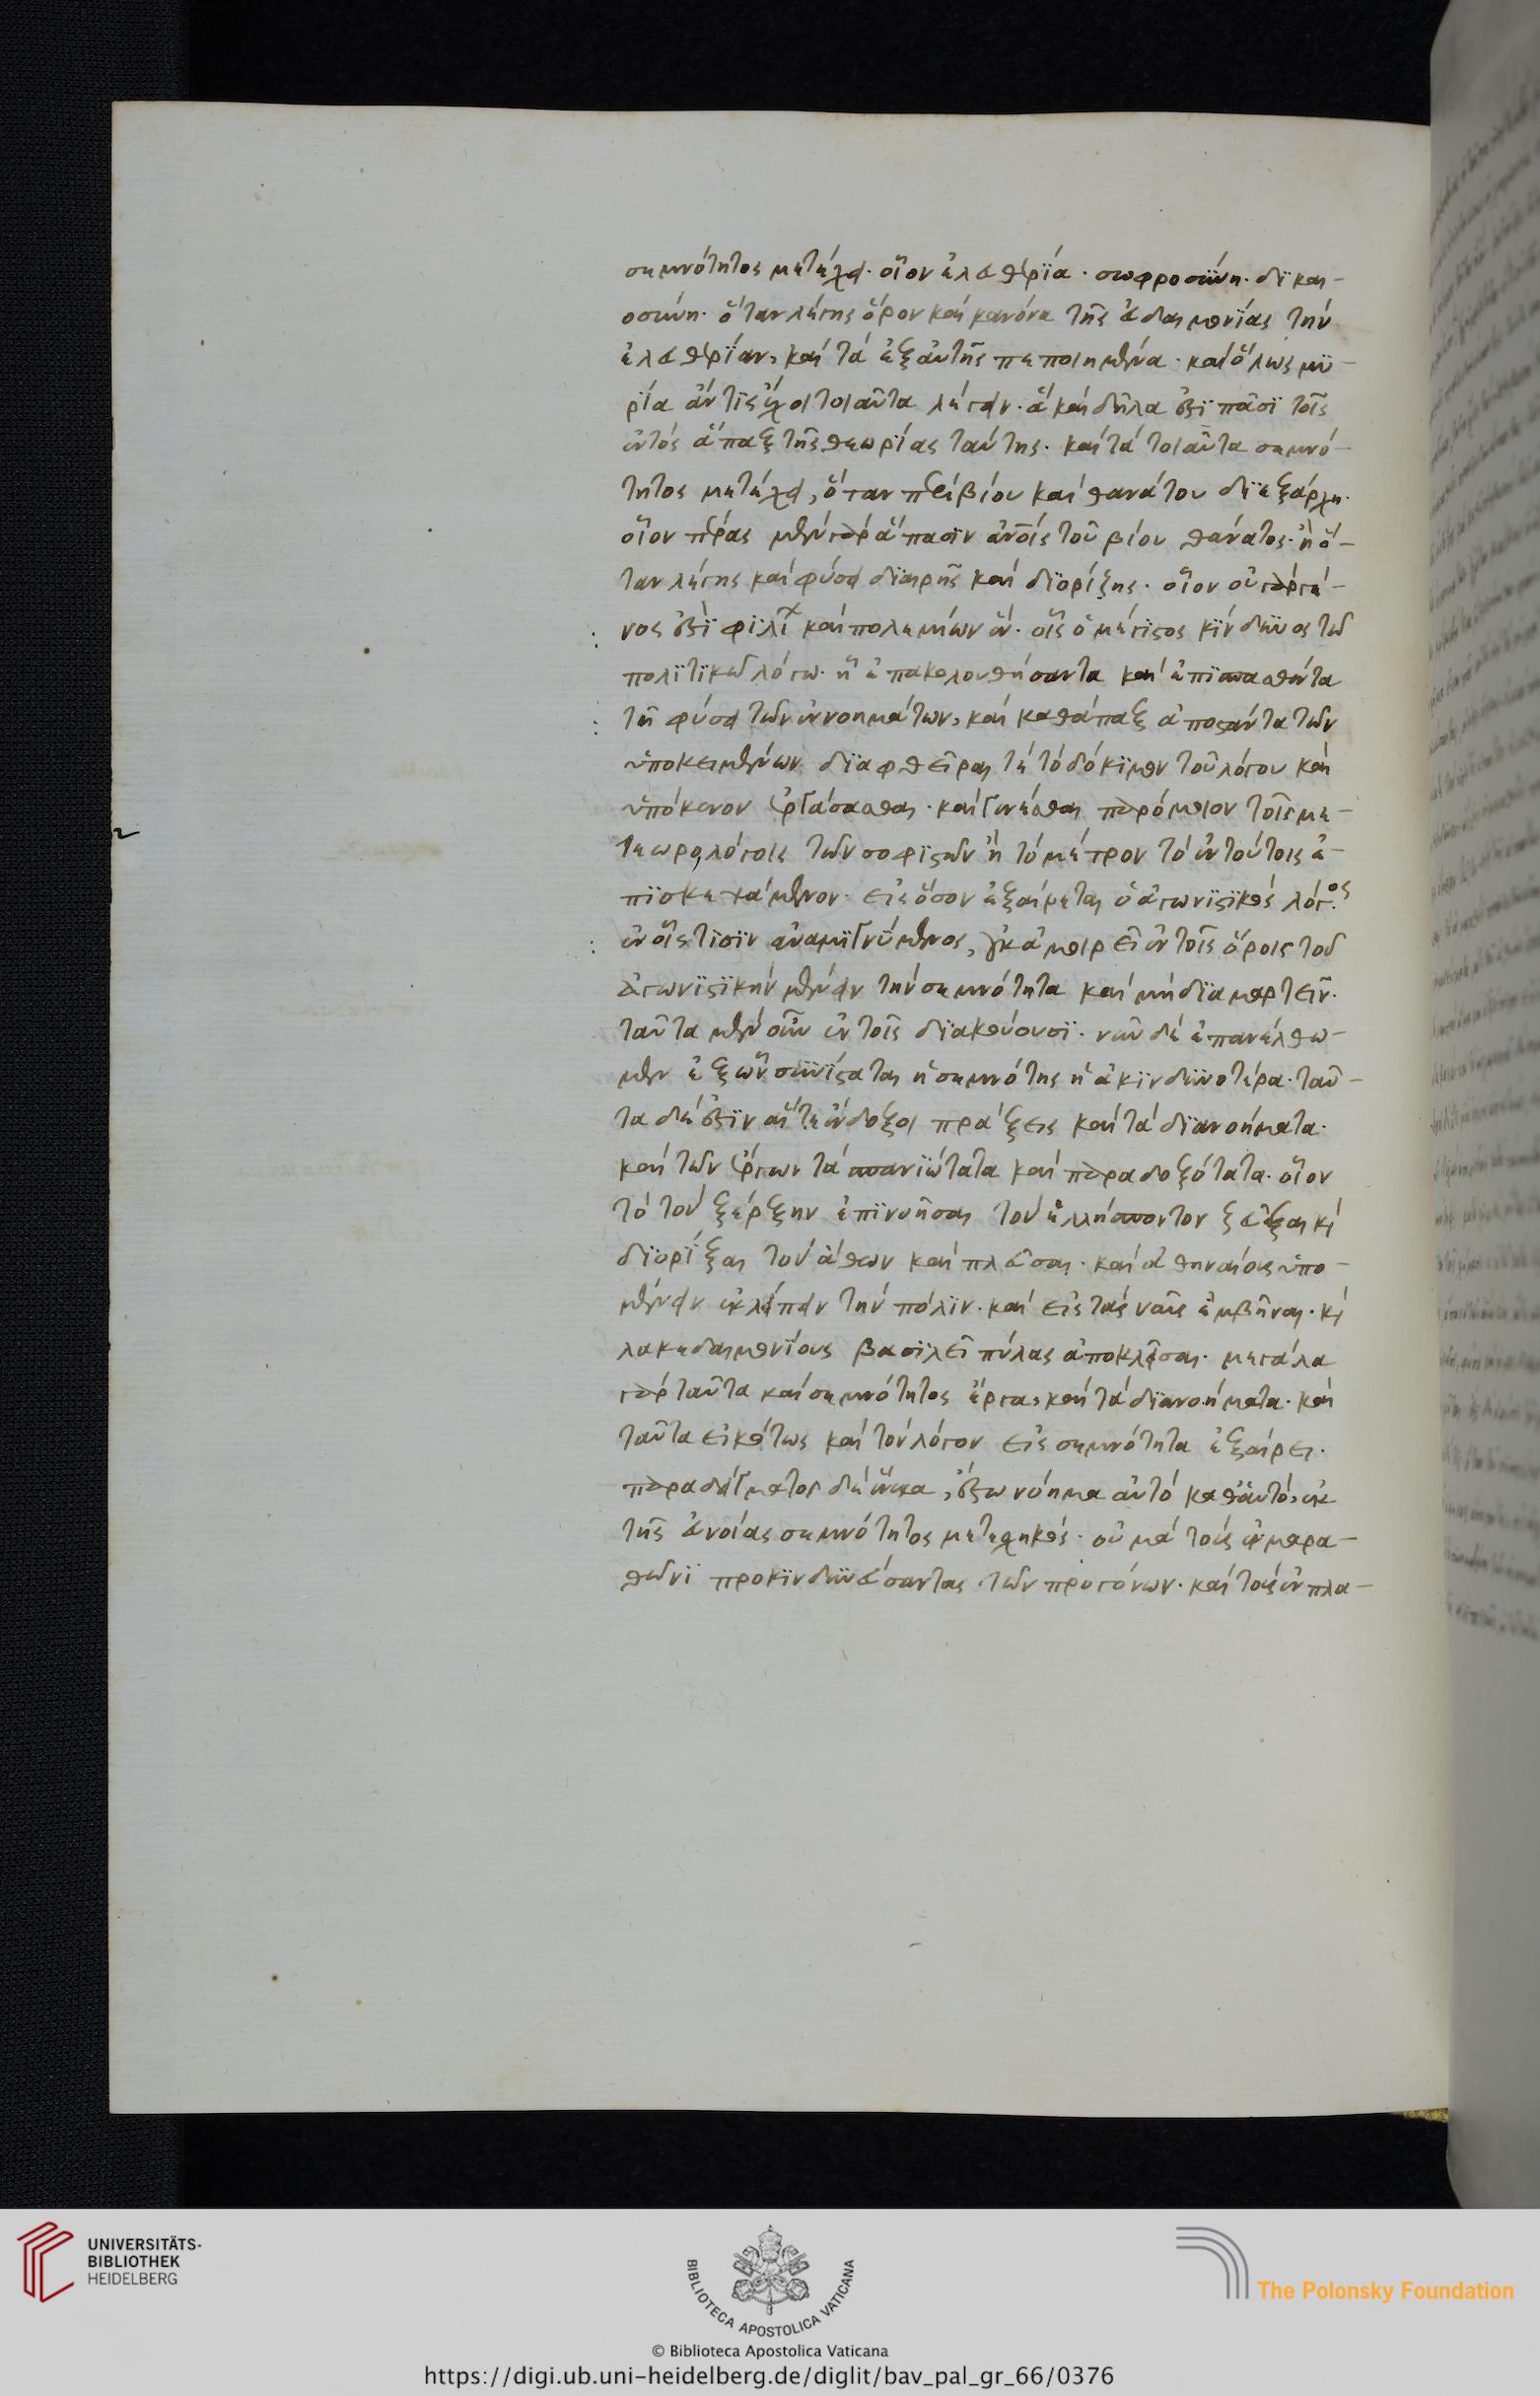 σεμνότητος μετέχει· οἷον ἐλευθερία· σωφροσύνη· δικαι-
οσύνη· ὅταν λέγῃς ὅρον καὶ κανόνα τῆς εὐδαιμονίας τὴν
ἐλευθερίαν, καὶ τὰ ἐξ αὐτῆς πεποιημένα· καὶ ὅλως μυ-
ρία ἄν τις ἔχοι τοιαῦτα λέγειν· ἃ καὶ δῆλα ἐστὶ πᾶσι τοῖς
ἐντὸς ἅπαξ τῆς θεωρίας ταύτης· καὶ τὰ τοιαῦτα σεμνό-
τητος μετέχει, ὅταν περὶ βίου καὶ θανάτου διεξάρχῃ·
οἷον πέρας μὲν γὰρ ἅπασιν ἀνοις τοῦ βίου θάνατος· ἢ ὅ-
ταν λέγῃς καὶ φύσει διαιρῇς καὶ διορίζῃς· οἷον οὐ γὰρ γέ-
νος ἐστὶ φιλι καὶ πολεμίων ἕν· οἷς ὁ μέγιστος κίνδυνος τῶ
πολιτικῶ λόγω· ἢ ἐπακολουθήσαντα καὶ ἐπισπασθέντα
τῇ φύσει τῶν ἐννοημάτων, καὶ καθάπαξ ἀποστάντα τῶν
ὑποκειμένων διαφθεῖραι τε τὸ δόκιμον τοῦ λόγου καὶ
ὑπόκενον ἐργάσασθαι· καὶ γενέσθαι παρόμοιον τοῖς με-
τεωρολόγοις τῶν σοφιστῶν ἢ τὸ μέτρον τὸ ἐν τούτοις ἐ-
πισκεψάμενον· εἰς ὅσον ἐξαίρεται ὁ ἀγωνιστικὸς λόγος
ἐν οἷς τισὶν ἀναμιγνύμενος, ἐν τοῖς ὅροις τοῦ
ἀγωνιστικὴν μένειν τὴν σεμνότητα καὶ μὴ διαμαρτεῖν·
ταῦτα μὲν οὖν ἐν τοῖς διακούουσι· νῦν δὲ ἐπανέλθω-
μεν ἐξ ὧν συνίσταται ἡ σεμνότης ἡ ἀκινδυνοτέρα· ταῦ-
τα δέ ἐστιν αἵ τε ἔνδοξοι πράξεις καὶ τὰ διανοήματα·
καὶ τῶν ἔργων τὰ σπανιώτατα καὶ παραδοξότατα· οἷον
τὸ τὸν ξέρξην ἐπινοῆσαι τὸν ἑλλήσποντον ζεῦξαι κὶ
διορίξαι τὸν ἄθων καὶ πλεῦσαι· καὶ ἀθηναίοις ὑπο-
μένειν ἐκλείπειν τὴν πόλιν· καὶ εἰς τὰς ναῦς ἐμβῆναι· κὶ
λακεδαιμονίους βασιλεῖ πύλας ἀποκλεῖσαι· μεγάλα
γὰρ ταῦτα καὶ σεμνότητος ἔργα, καὶ τὰ διανοήματα· καὶ
ταῦτα εἰκότως καὶ τὸν λόγον εἰς σεμνότητα ἐξαίρει·
παραδείγματος δὲ ἕνεκα, ἔστω νόημα αὐτὸ καθ' αὑτὸ, ἐκ
τῆς εὐνοίας σεμνότητος μετεχηκὸς· οὐ μὰ τοὺς ἐν μαρα-
θῶνι προκινδυνεύσαντας τῶν προγόνων· καὶ τοὺς ἐν πλα-
UNIVERSITÄTS-
BIBLIOTHEK
HEIDELBERG
BIBLIOTECA APOSTOLICA VATICANA
The Polonsky Foundation
© Biblioteca Apostolica Vaticana
https://digi.ub.uni-heidelberg.de/diglit/bav_pal_gr_66/0376